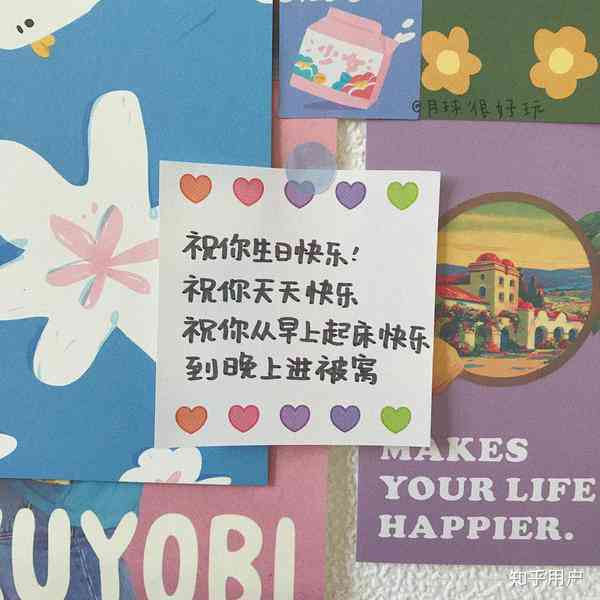 少女
@月球很好玩
祝你生日快乐!
祝你天天快乐
祝你从早上起床快乐
到晚上进被窝
MAKES
YOUR LIFE
HAPPIER.
UYOBI
知乎用户